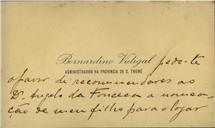 Bernardino Vidigal pede-te
ADMINISTRADOR NA PROVINCIA DE S. THOMÉ
o favor de recommendares ao
Dr. Angelo da Fonseca a nomea-
ção de meu filho para o logar